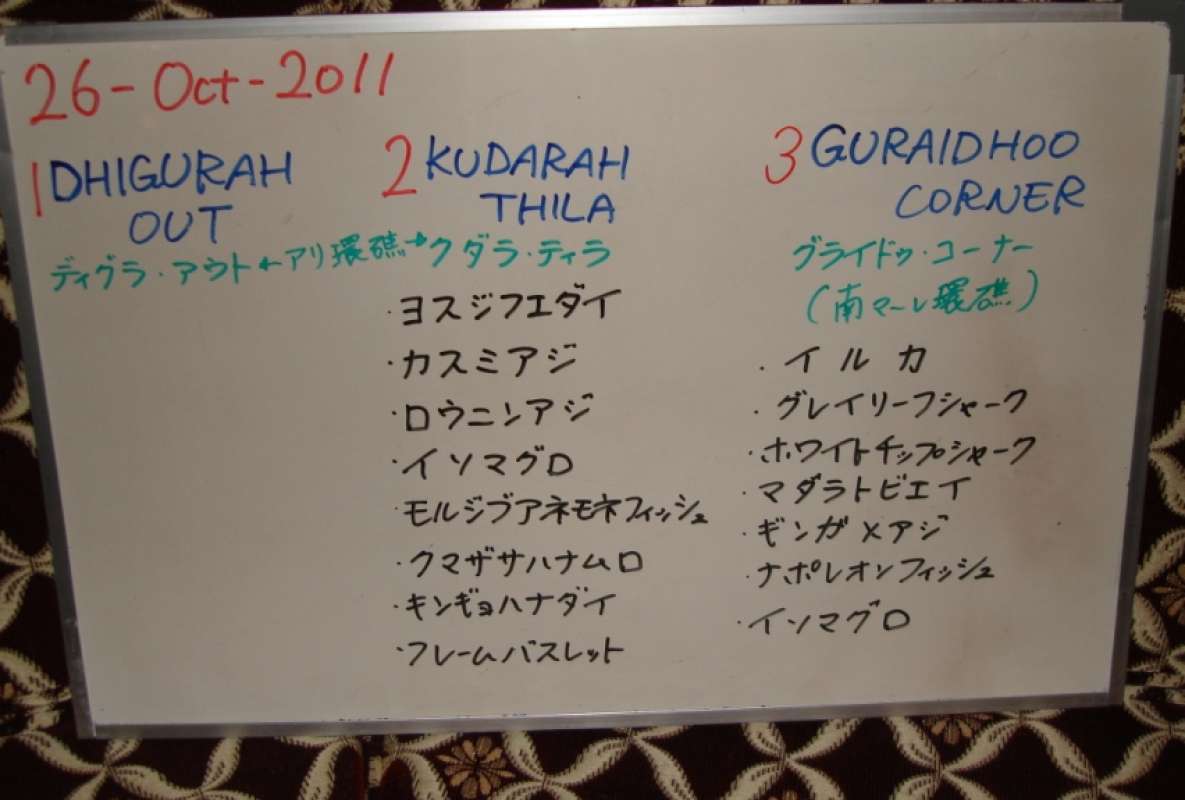 26-Oct-2011
1 DHIGURAH
OUT
ディグラ・アウト←アリ環礁→クダラ・ティラ
2 KUDARAH
THILA
・ヨスジフエダイ
・カスミアジ
・ロウニンアジ
・イソマグロ
・モルジブアネモネフィッシュ
・クマザサハナムロ
・キンギョハナダイ
・フレームバスレット
3 GURAIDHOO
CORNER
グライドゥ・コーナー
(南マーレ環礁)
・イルカ
・グレイリーフシャーク
・ホワイトチップシャーク
・マダラトビエイ
・ギンガメアジ
・ナポレオンフィッシュ
・イソマグロ